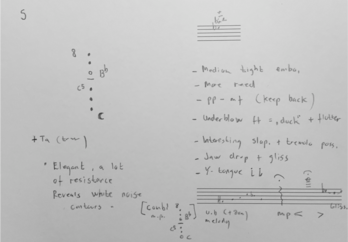 5
8
Bb
C5
C
+ Ta (trem)
• Elegant, a lot
of resistance
Reveals white noise
contours
- Medium tight embo.
- More reed
- pp - mf (keep back)
- Underblow ft "duck" + flutter
- Interesting slap, + tremolo poss.
- Jaw drop + gliss
- Y. tongue
[Combi
m.p.
8
Bb
C
vib
melody
mp < >